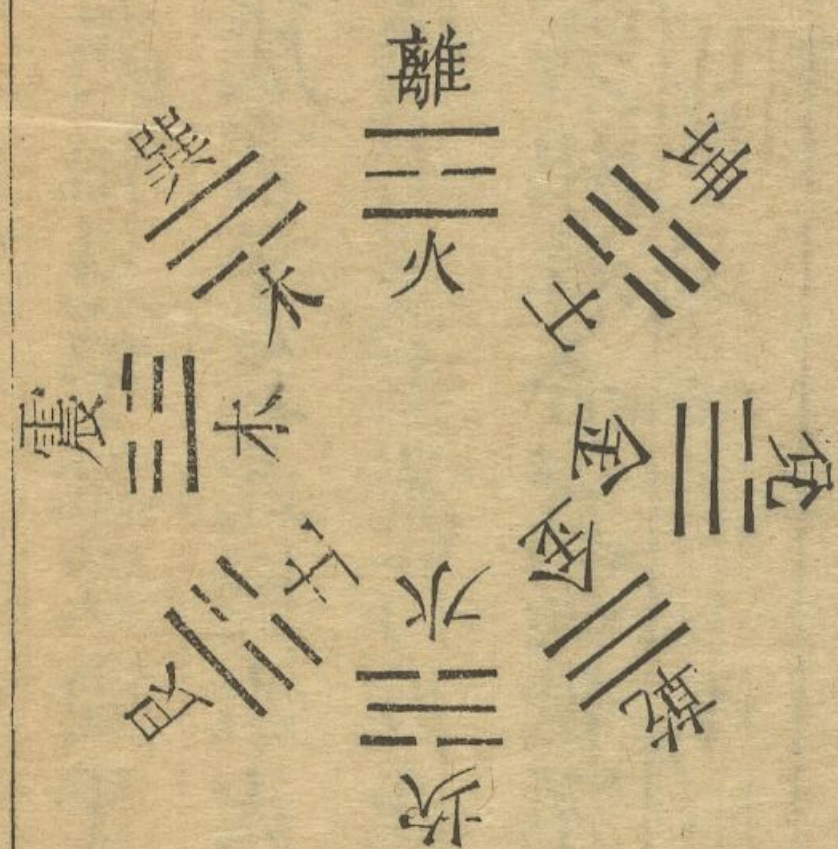 離
火
坤
土
兌
金
乾
金
坎
水
艮
土
震
木
巽
木